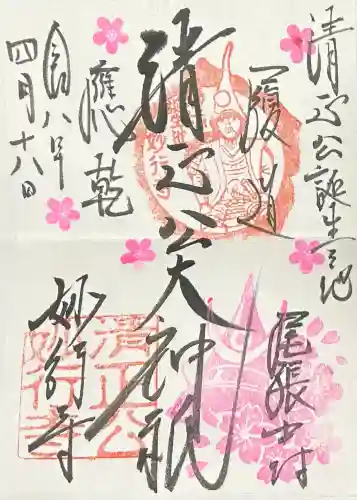 清正公誕生之地
尾張中村
履道
清正公大神祇
應乾
妙行寺
令和八年
四月十八日
清正公
妙行寺